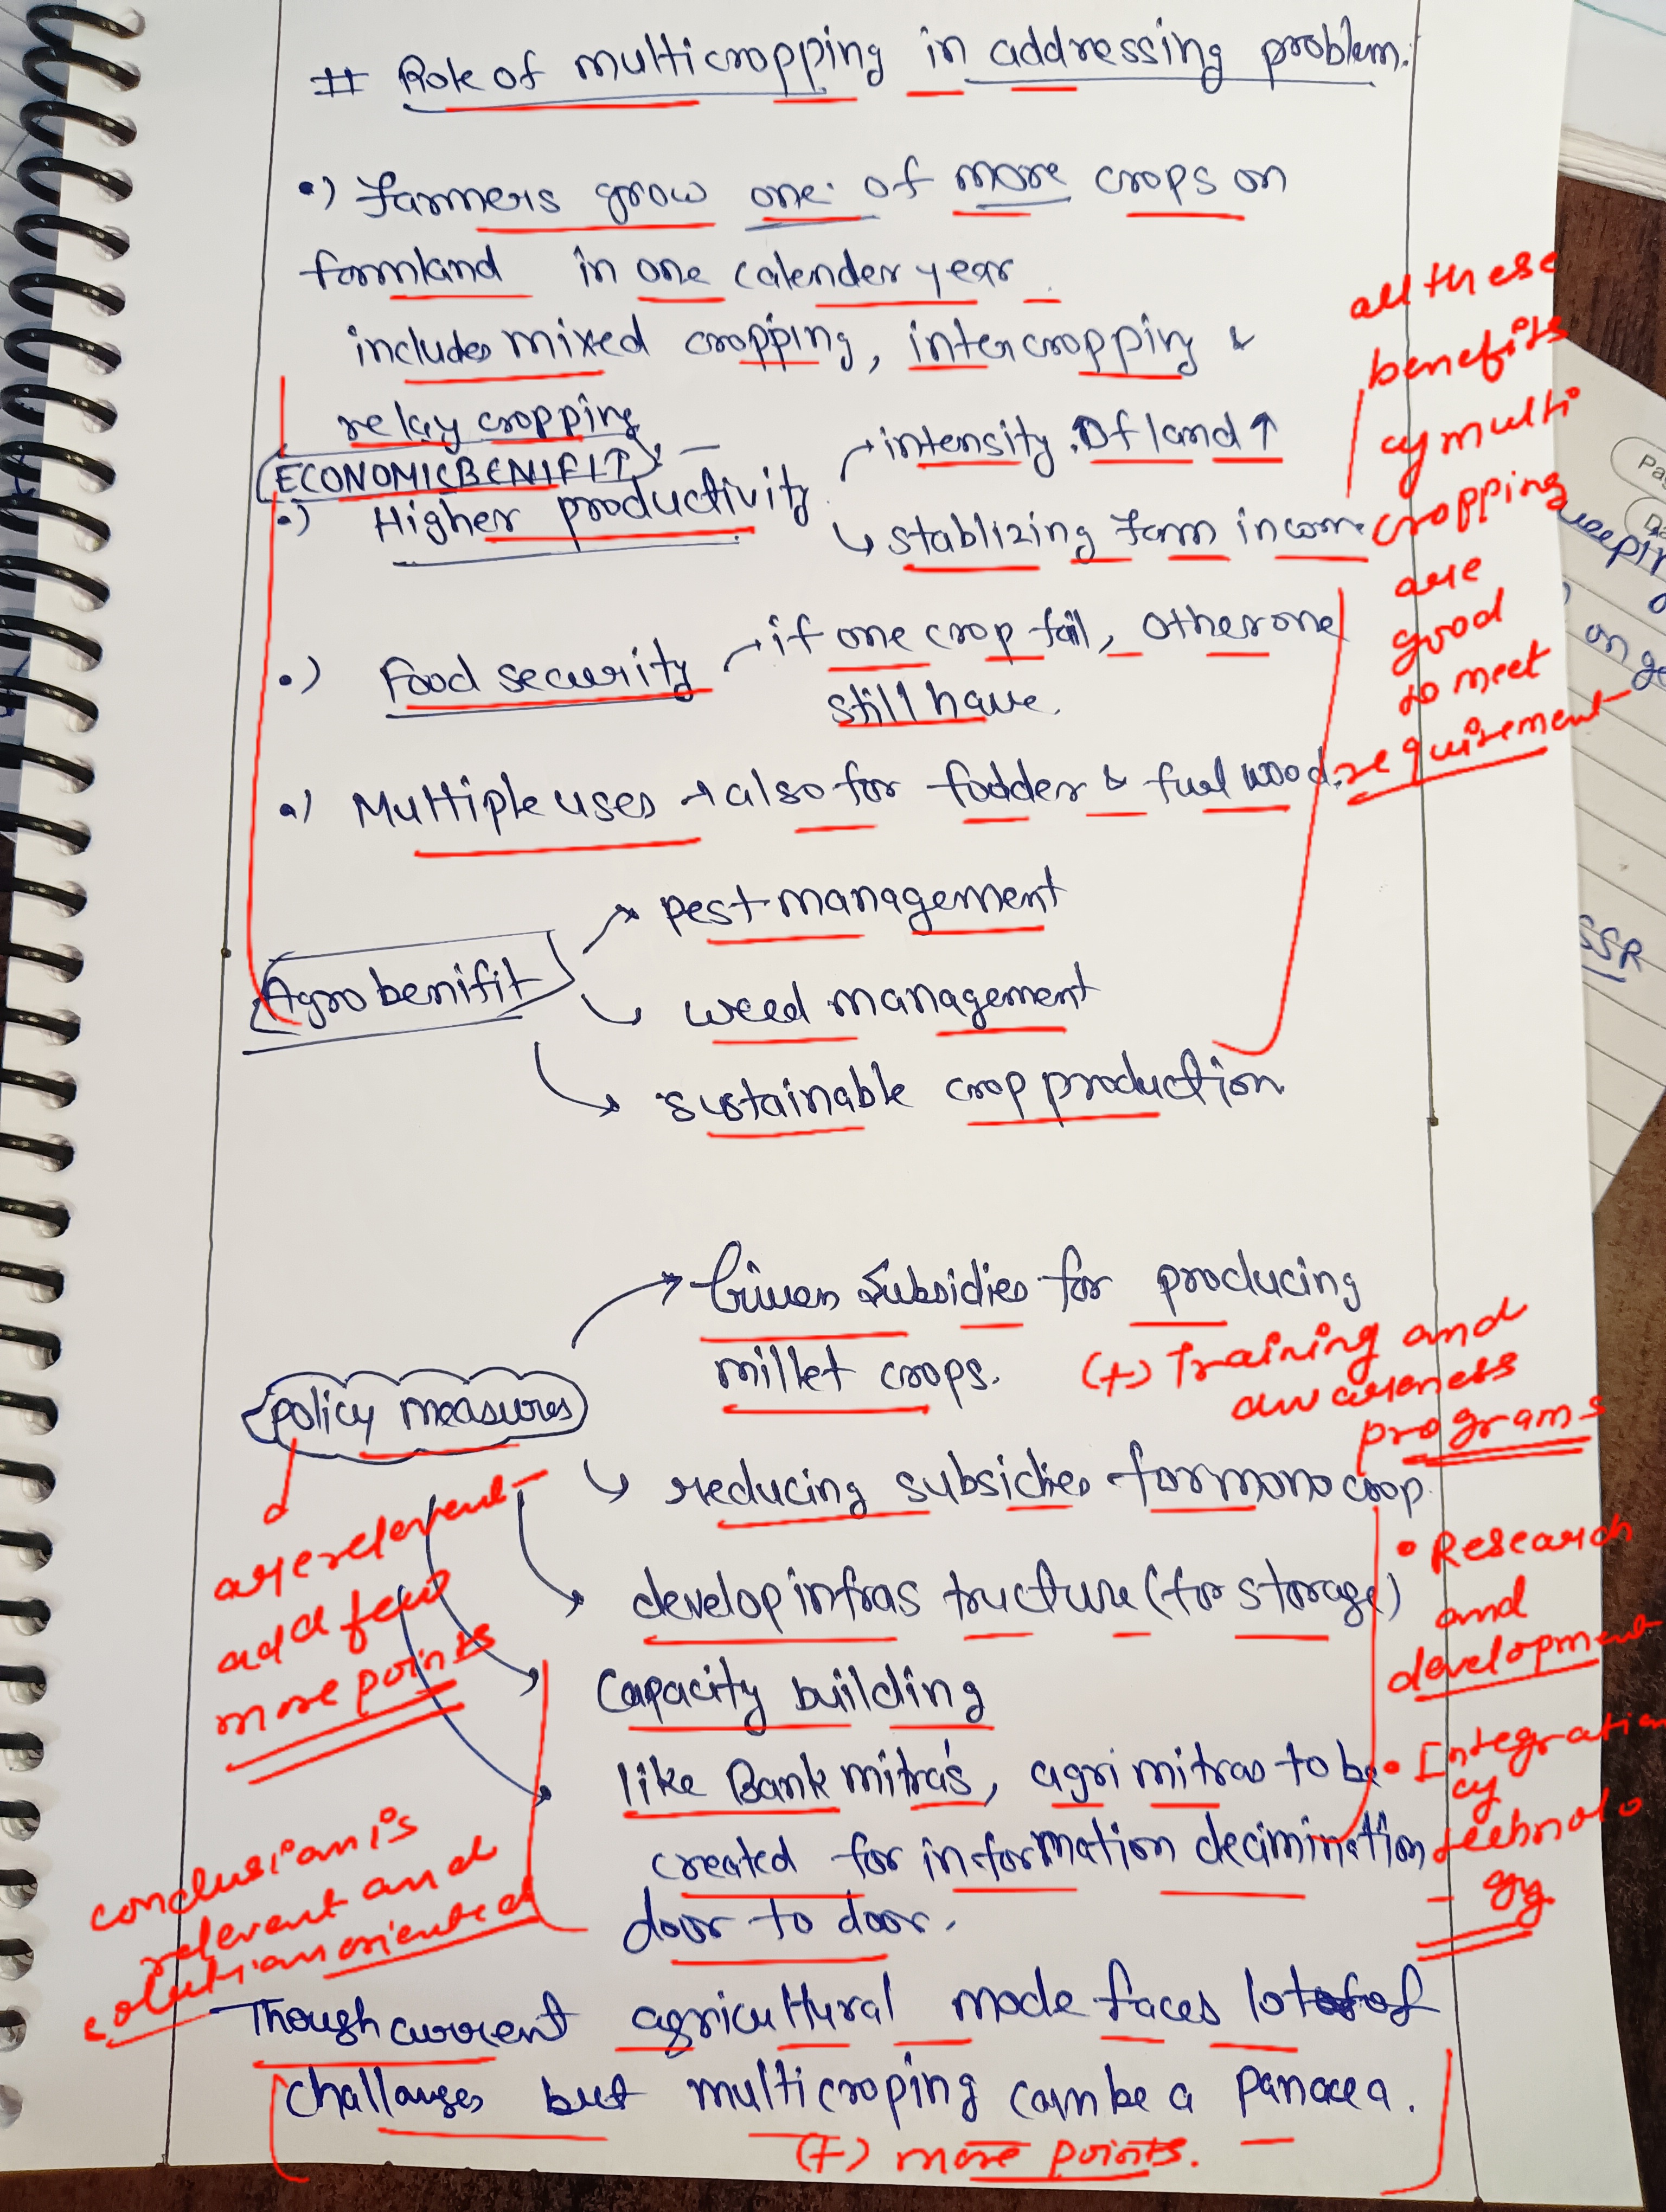 # Role of multicropping in addressing problem.
•) Farmers grow one of more crops on
farmland in one calender year
includes mixed cropping, intercropping &
relay cropping
ECONOMIC BENIFIT↑
•) Higher productivity
→ intensity of land ↑
↳ stablizing farm income
•) Food security → if one crop fail, other one
still have.
•) Multiple uses → also for fodder & fuel wood.
all these
benefits
cy multi
cropping
are
good
to meet
requirement
Agro benifit
→ pest management
↳ weed management
↳ sustainable crop production
policy measures
→ Given subsidies for producing
millet crops.
(+) Training and
awareness
programs
↳ reducing subsidies for mono crop.
→ develop infrastructure (for storage)
Capacity building
like Bank mitra's, agri mitras to be
created for information decimination
door to door.
are relevent
add few
more points
• Research
and
development
• Integration
cy
technolo
- gy
conclusion is
relevent and
solution oriented
Though current agricultural mode faces lot of
challanges but multicroping can be a panacea.
(+) more points.
Pa
on ge
SSR